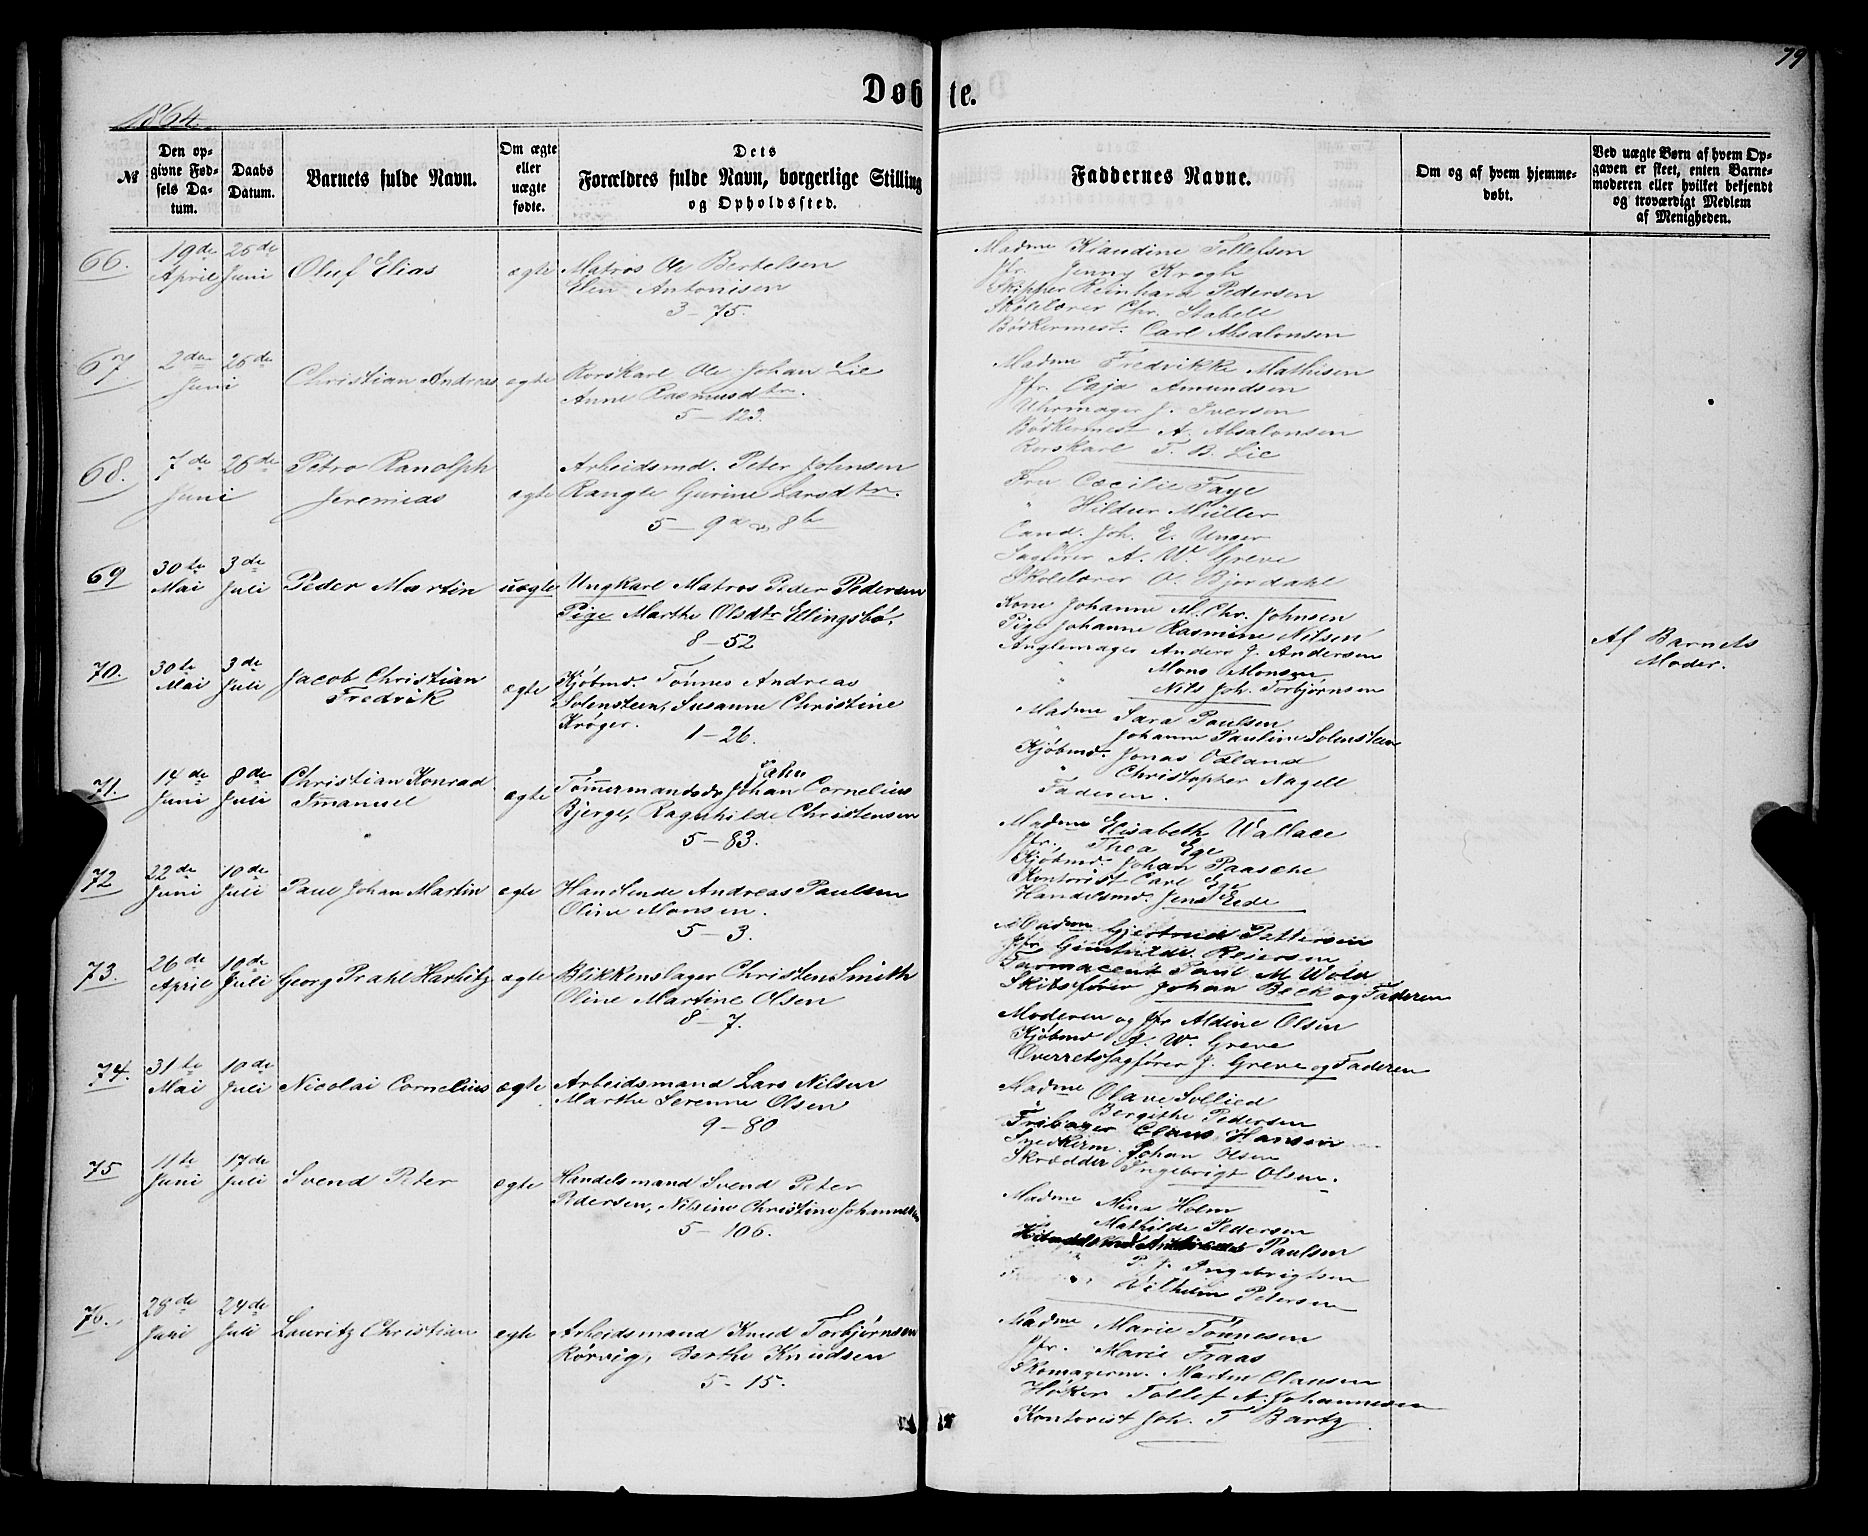 79
Døbte.
1864.
№
Den opgivne Fødsels Datum.
Daabs Datum.
Barnets fulde Navn.
Om ægte eller uægte fødte.
Dets Forældres fulde Navn, borgerlige Stilling og Opholdssted.
Faddernes Navne.
Om og af hvem hjemmedøbt.
Ved uægte Børn af hvem Opgaven er skeet, enten Barnemoderen eller hvilket bekjendt og troværdigt Medlem af Menigheden.
66. 19de April 26de Juni Oluf Elias ægte
Matros Ole Bertelsen
Elen Antonisen
3 – 75.
Madme Klaudine Tollefsen
Jfr. Jenny Krogh
Skipper Reinhard Pedersen
Skolelærer Chr. Stabell
Bødkermest. Carl Absalonsen
67 2den Juni 26de Christian Andreas ægte
Rorskarl Ole Johan Lie
Anne Rasmusdtr.
5 – 123.
Madme Fredrikke Mathisen
Jfr. Caja Amundsen
Uhrmager J. Iversen
Bødkermest A. Absalonsen
Rorskarl T. B. Lie
68. 7de Juni 26de Petro Ranolph
Jeremias ægte
Arbeidsmd. Peter Johnsen
Rangle Gurine Larsdtr.
5 – 9a & 8b
Fru Cæcilie Faye
" Hildur Müller
Cand. Joh. E. Unger
Sagfører A. W. Greve
Skolelærer O. Bjordahl
69 30te Mai 3de Juli Peder Martin uægte
Ungkarl Matros Peder Pedersen
Pige Marthe Olsdtr Ellingsbö.
8 – 52
Kone Johanne M. Chr. Johnsen
Pige Johanne Rasmine Nilsen
Anglemager Anders J. Andersen
Mons Monsen
" Nils Joh. Torbjörnsen
Af Barnets
Moder.
70. 30te Mai 3de Juli Jacob Christian
Fredrik ægte
Kjøbmd. Tönnes Andreas
Solensteen, Susanne Christine
Kröger.
1 – 26.
Madme Sara Paulsen
" Johanne Pauline Solensteen
Kjøbmd. Jonas Odland
" Christopher Nagell
Faderen.
71. 14de Juni 8de Juli Christian Konrad
Imanuel ægte
Tömmermandsdr Johan Cornelius
Bjerge, Ragnhilde Christensen
5 – 83.
Madme Elisabeth Wallace
Jfr. Thea Ege
Kjøbmd. Johan Paasche
Kontorist Carl Ege
Handelsmd. Jens Eide
72 22de Juni 10de Juli Paul Johan Martin ægte
Handlende Andreas Paulsen
Oline Monsen.
5 – 3.
Madme Gjertrud Pettersen
Jfr Gunhilde Reiersen
Farmaceut Paul M. Wold
Skibsfører Johan Beck og Faderen
73. 26de April 10de Juli Georg Prahl Harbitz ægte
Blikkenslager Christen Smith
Oline Martine Olsen
8 – 7.
Moderen og Jfr Aldine Olsen
Kjøbmd A. W. Greve
Overretssagfører J. Greve og Faderen
74. 31te Mai 10de Juli Nicolai Cornelius ægte
Arbeidsmand Lars Nilsen
Marthe Serenne Olsen
9 – 80
Madme Olave Sollied
" Bergithe Pedersen
Fribager Claus Hansen
Snedkerm. Johan Olsen
Skrædder Ingebrigt Olsen.
75 11te Juni 17de Juli Svend Peter ægte
Handelsmand Svend Peter
Pedersen, Nilsine Christine Johannesen
5 – 106.
Madme Mina Holm
" Mathilde Pedersen
Paulsen
" P. J. Ingebrigtsen
" Vilhelm Petersen
76. 28de Juni 24de Juli Lauritz Christian ægte
Arbeidsmand Knud Torbjörnsen
Rörvig, Berthe Knudsen
5 – 15.
Madme Marie Tönnesen
Jfr. Marie Fraas
Skomagerm. Martin Clausen
Höker Tollef A. Johannesen
Kontorist Joh. T. Bartz.